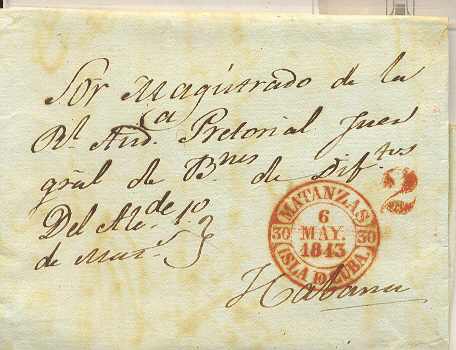 Sor Magistrado de la
Rl Audca Pretorial Juez
gral de Bnes de Diftos
Del Alcde 1o
de Matzs
Habana
MATANZAS
6
MAY.
1843
30 30
ISLA DE CUBA.
2